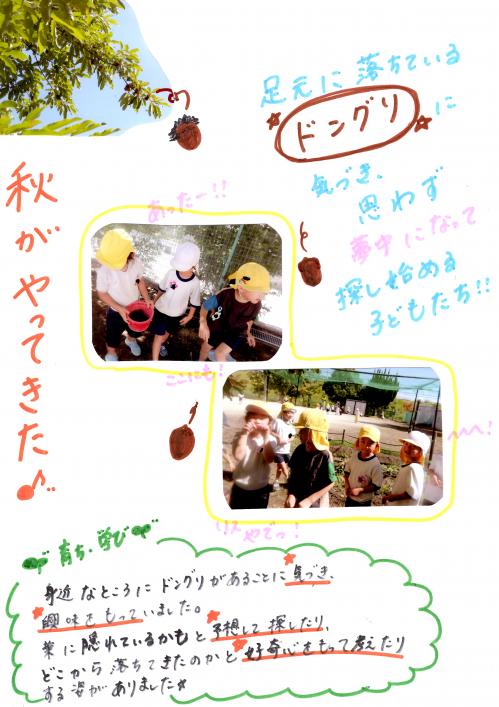 秋がやってきた♪
足元に落ちている
☆ドングリ☆に
気づき、
思わず
夢中になって
探し始める
子どもたち!!
あったー!!
ここにも!
リスやでっ!
育ち・学び
身近なところにドングリがあることに気づき、
興味をもっていました。
葉に隠れているかもと予想して探したり、
どこから落ちてきたのかと好奇心をもって考えたり
する姿がありました☆